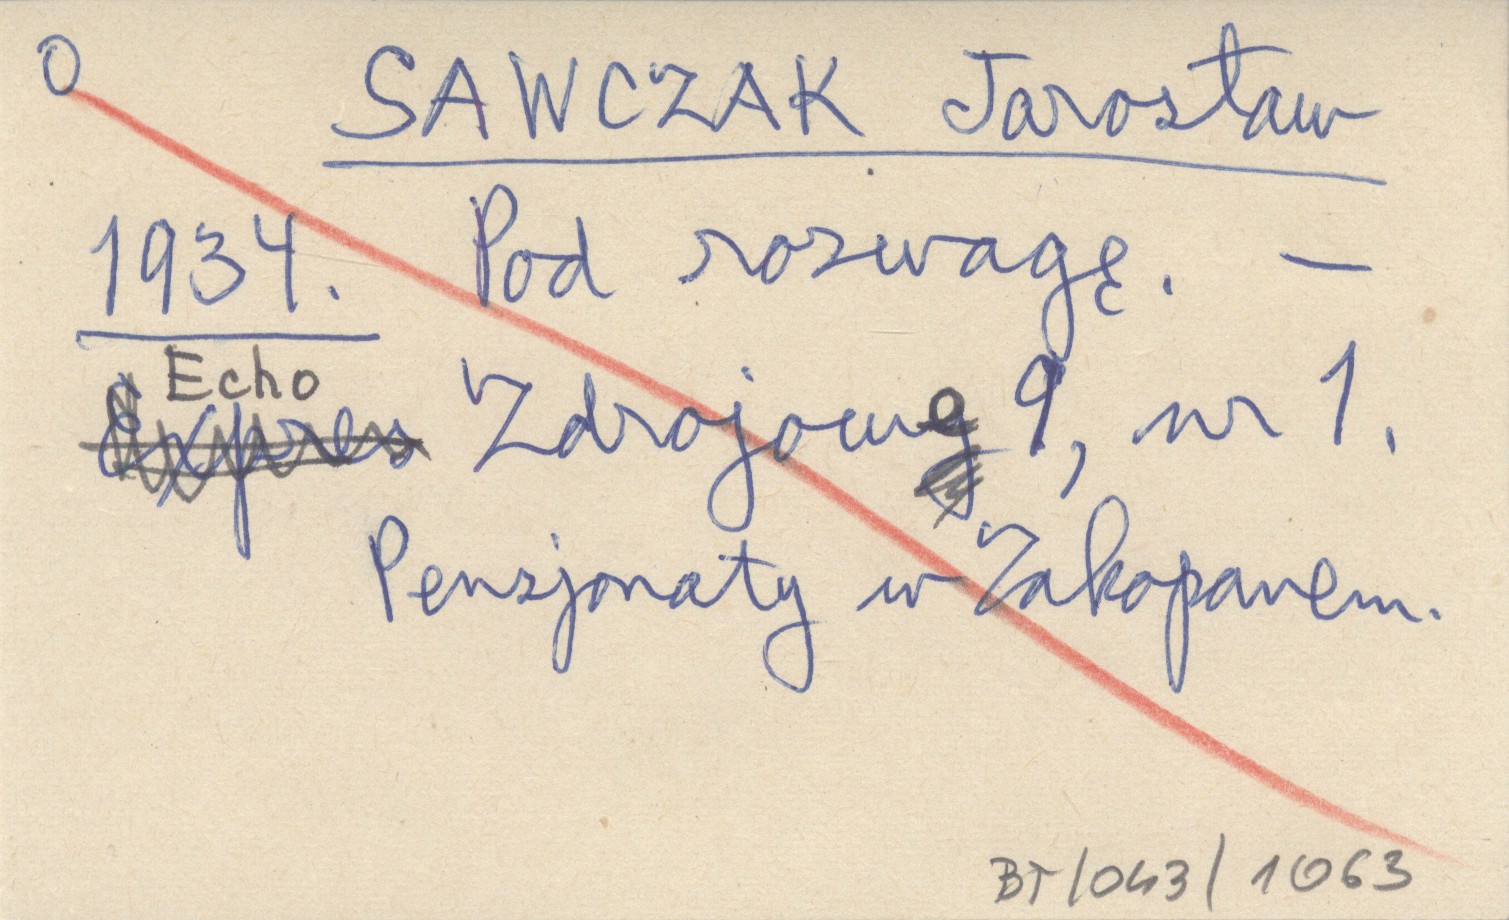 O SAWCZAK Jarosław
1934. Pod rozwagę. —
Echo
Expres Zdrojowe 9, nr 1.
Pensjonaty w Zakopanem.
BT/043/1063